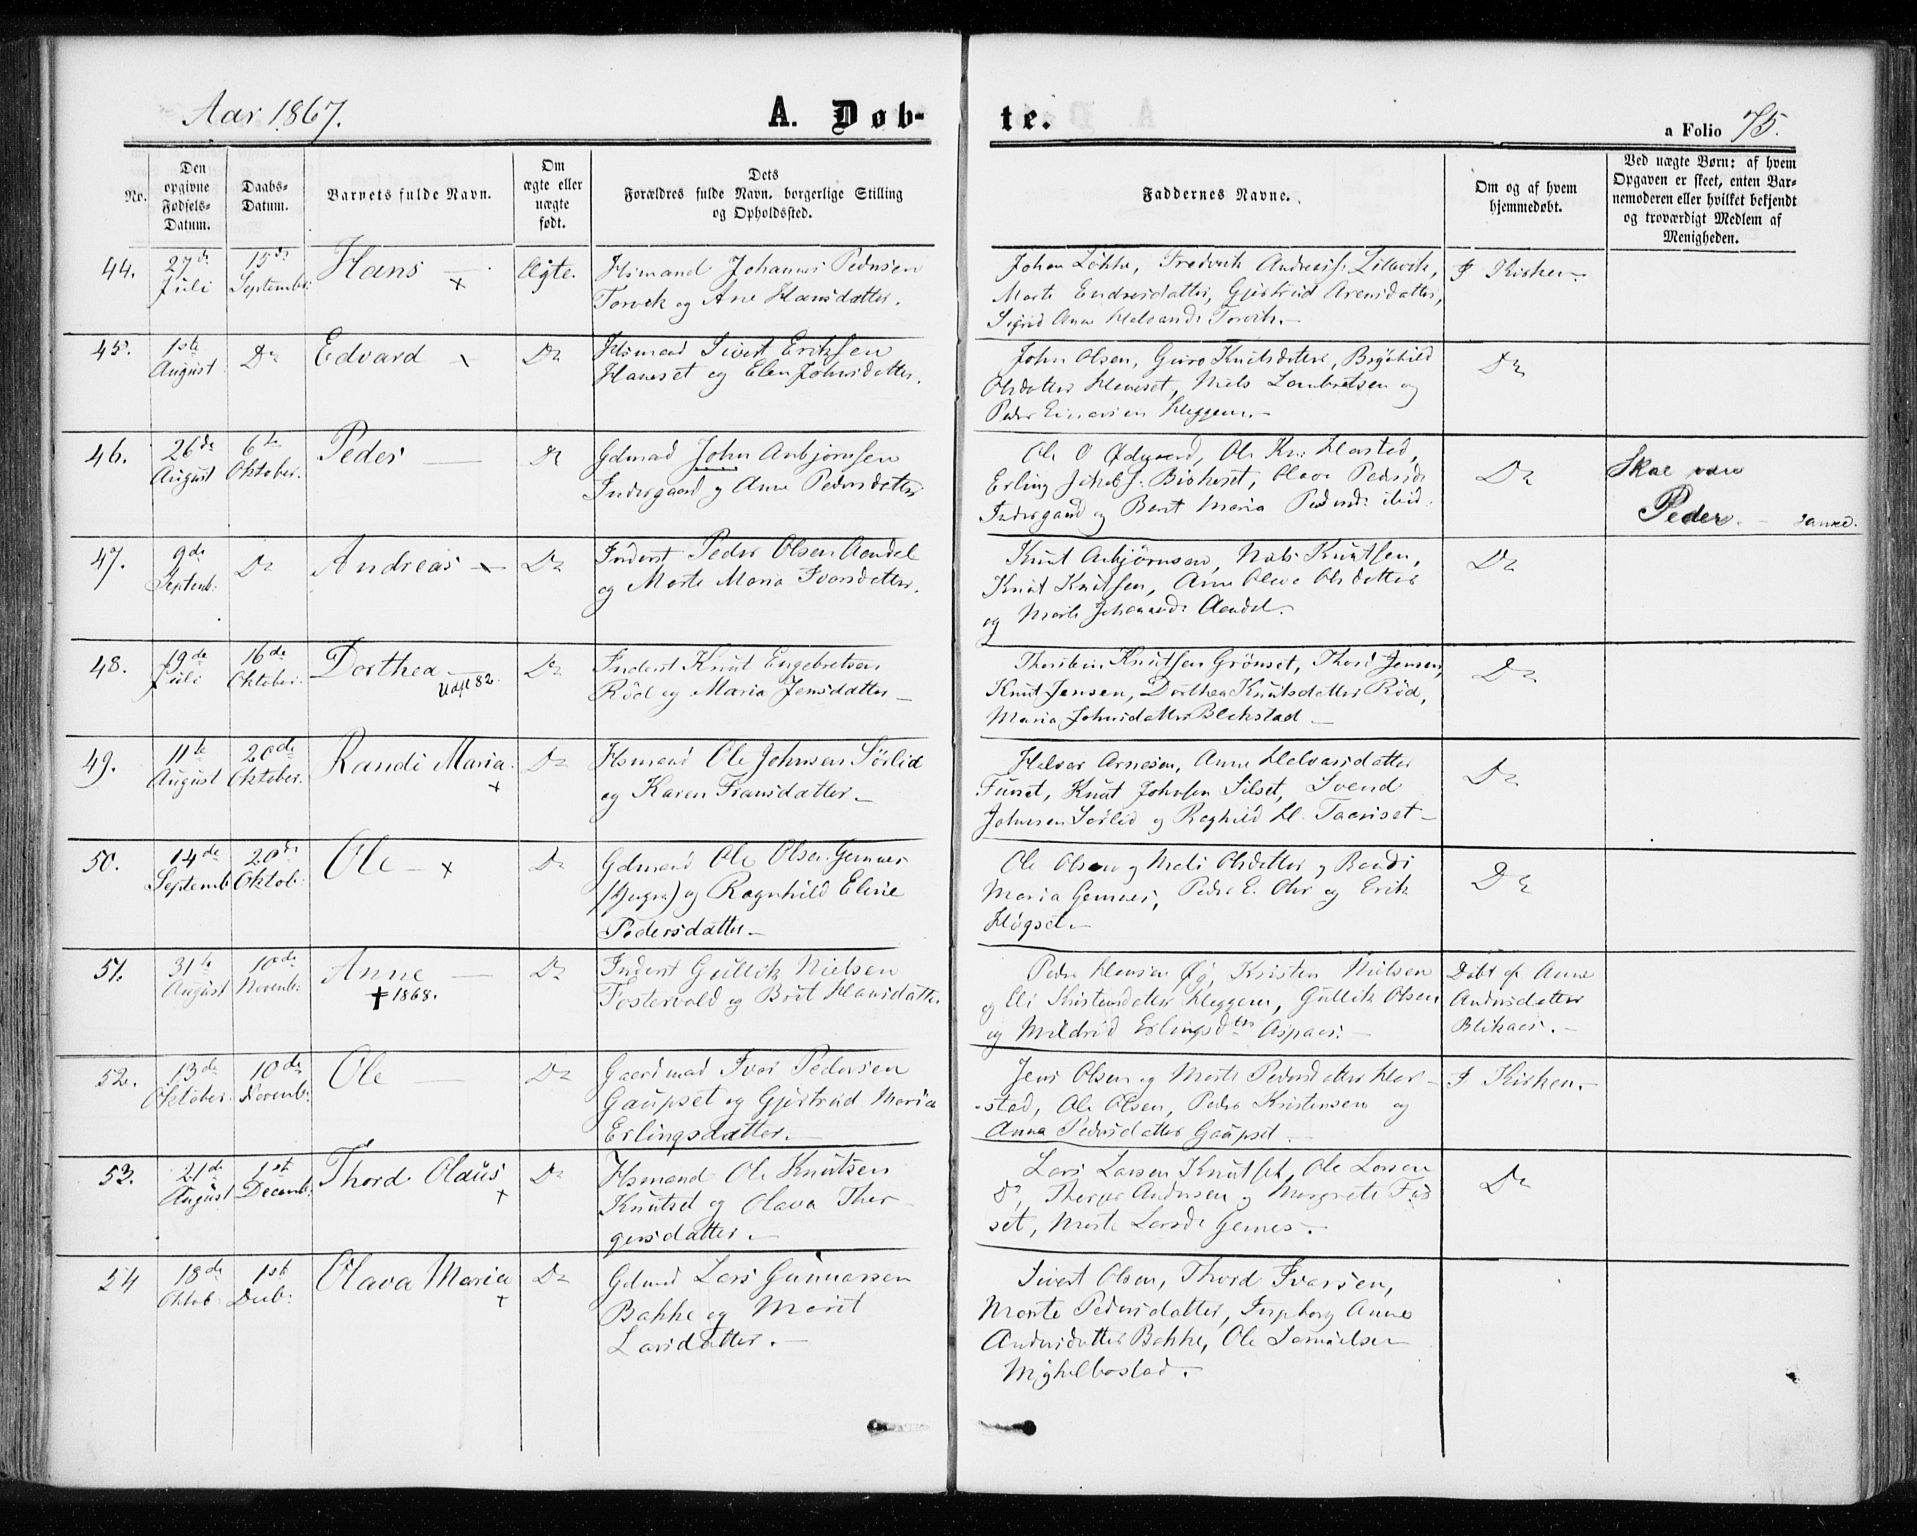 Aar 1867.
A. Døb-
te.
a Folio 75.
No.
Den
opgivne
Fødsels-
Datum.
Daabs-
Datum.
Barnets fulde Navn.
Om
ægte eller
uægte
født.
Dets
Forældres fulde Navn, borgerlige Stilling
og Opholdssted.
Faddernes Navne.
Om og af hvem
hjemmedøbt.
Ved uægte Børn: af hvem
Opgaven er skeet, enten Bar-
nemoderen eller hvilket bekjendt
og troværdigt Medlem af
Menigheden.
44.
27de
Juli
15de
Septembr:
Hans —
+
Ægte.
Hsmand Johannes Pedersen
Torvik og Ane Hansdatter.
Johan Løkke, Fredrik Andreass:
Marte Endresdatter, Gjertrud Arensdatter,
Sigrid Anne Torvik.—
I Kirken.
45.
1ste
August
Do
Edvard +
Do
Hsmand Sivert Eriksen
Haneset og Elen Johnsdatter.
John Olsen, Guro Knutsdatter, Brynhild
Olsdatter Haneset, Niels Lambretsen og
Peder Einarsen Heggem.—
Do
46.
26de
August
6te
Oktober.
Peder —
Do
Gdmand John Anbjørnsen
Indergaard og Anne Pedersdatter
Ole O Ødegaard, Ole Kn: Harstad,
Erling Jakobs: Biskeset, Olava Pedersd:
Indergaard og Berit Maria Pedersd: ibid.
Do
Skal være
Peder. —
47.
9de
Septemb:
Do
Andreas — +
Do
Inderst Peder Olsen Aandal
og Marte Maria Ivarsdatter.
Knut Anbjørnsen, Niels Knutsen,
Knut Knutsen, Anne Olava Olsdatter
og Marte Johannesd: Aandal.
Do
48.
19de
Juli
16de
Oktober.
Dorthea
Udst 82.
Do
Inderst Knut Engebretsen
Rød og Maria Jensdatter —
Thorstein Knutsen Grønset, Thord Jensen,
Knut Jensen, Dorthea Knutsdatter Rød,
Maria Johnsdatter Blekstad —
Do
49.
11te
August
20de
Oktober.
Randi Maria.
+
Do
Hsmand Ole Johnsen Sørlid
og Karen Fransdatter —
Halvor Arnesen, Anne Halvorsdatter
Furset, Knut Johnsen Silset, Svend
Johnsen Sørlid og Raghild H. Taariset —
Do
50.
14de
Septemb
20de
Oktob:
Ole — +
Do
Gdmand Ole Olsen Gemnes
(yngre) og Ragnhild Eline
Pedersdatter —
Ole Olsen og Mali Olsdatter og Randi
Maria Gemnes, Peder E. Ohr og Erik
Høgset.—
Do
51.
31te
August
10de
Novemb:
Anne —
✝ 1868.
Do
Inderst Gullik Nielsen
Fostervold og Brit Hansdatter
Peder Hansen Øg, Kristen Nielsen
og Eli Kristensdatter Heggem, Gullik Olsen
og Mildrid Erlingsdtr Aspaas.—
Døbt af Anne
Andersdatter
Blikaas.—
52.
13de
Oktober.
10de
Novemb:
Ole —
Do
Gaardmad Ivar Pedersen
Gaupset og Gjertrud Maria
Erlingsdatter.—
Jens Olsen og Marte Pedersdatter Har-
-stad, Ole Olsen, Peder Kristensen og
Anna Pedersdatter Gaupset.—
I Kirken.—
53.
21de
August
1st
Decemb:
Thord Olaus
+
Do
Hsmand Ole Knutsen
Knutset og Olava Thor-
gersdatter.—
Lars Larsen Knutset, Ole Larsen
Do, Thorger Andersen og Margrete
set, Marte Larsd: Gemnes.—
Do
54
18de
Oktob:
1st
Decb:
Olava Maria
+
Do
Gdmand Lars Gunnarsen
Bakke og Marit
Larsdatter.—
Sivert Olsen, Thord Ivarsen,
Marte Pedersdatter, Ingeborg Anne
Andersdatter Bakke, Ole Samuelsen
Mykelbostad.—